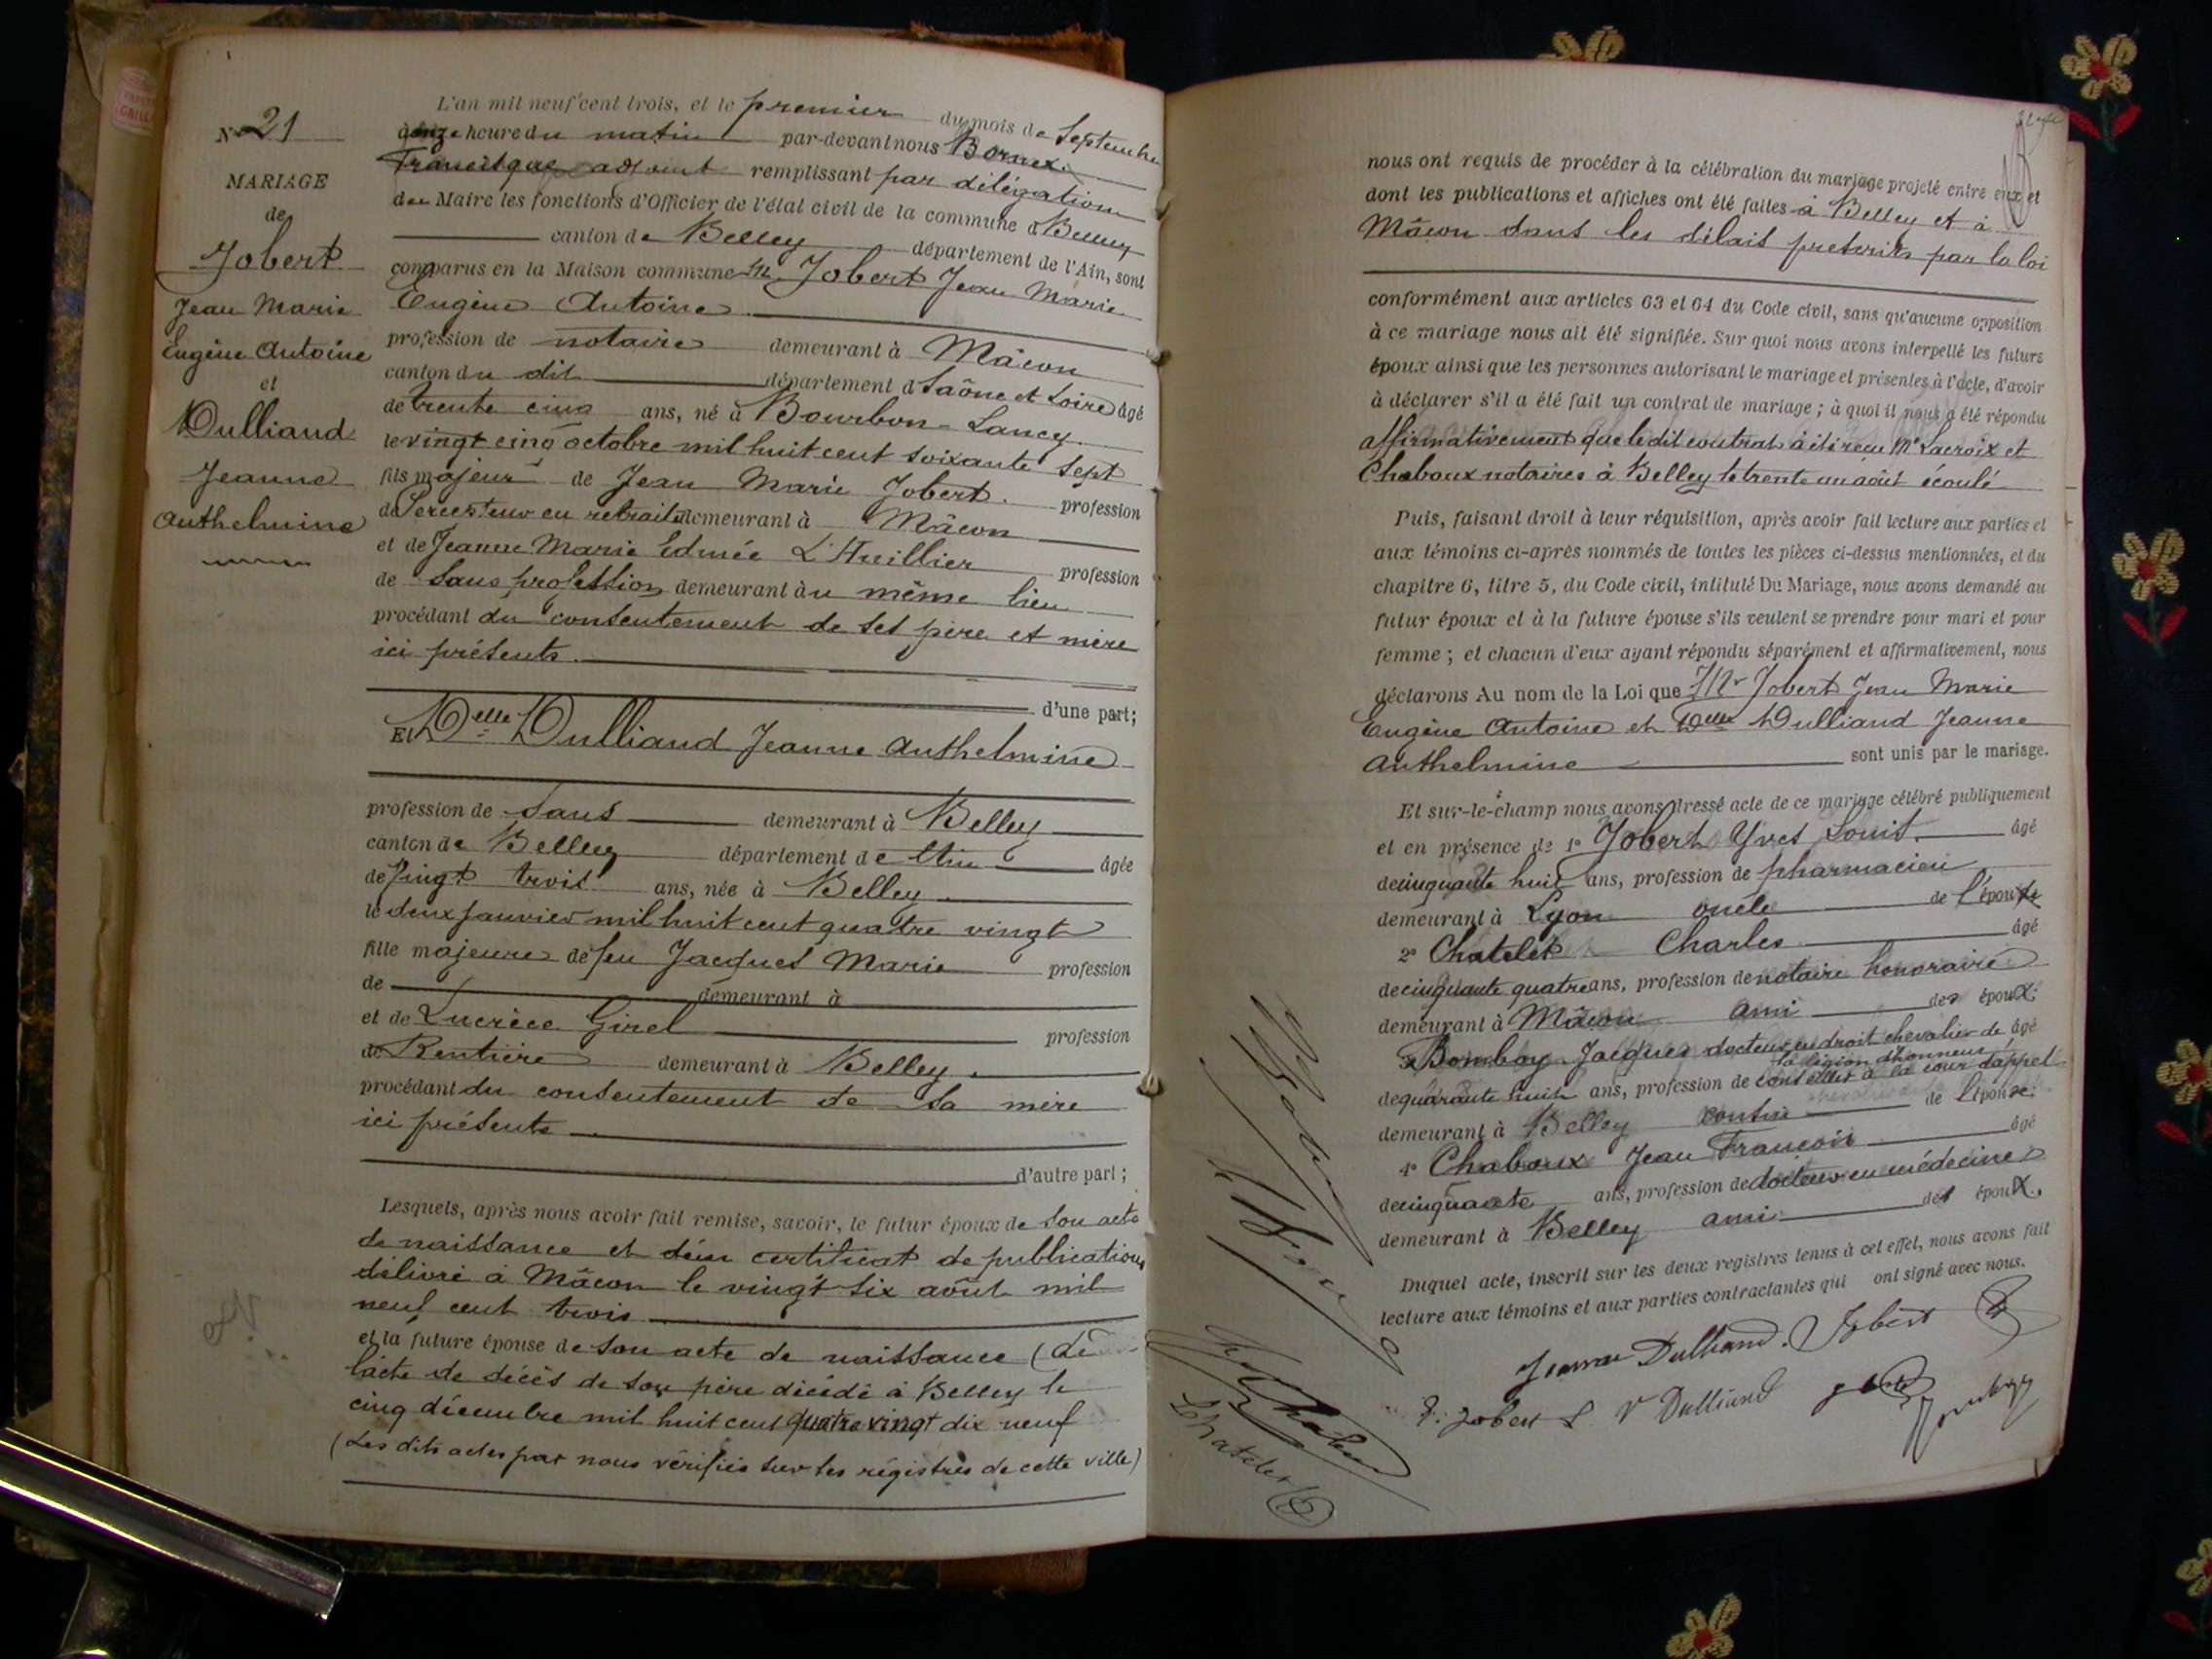 N° 21
MARIAGE
de
Jobert
Jean Marie
Eugène Antoine
et
Dulliand
Jeanne
Anthelmine
L'an mil neuf cent trois, et le premier du mois de Septembre
à onze heure du matin par-devant nous Bornex
Francisque adjoint remplissant par délégation
du Maire les fonctions d'Officier de l'état civil de la commune d Belley
canton de Belley département de l'Ain, sont
comparus en la Maison commune Mr Jobert Jean Marie
Eugène Antoine
profession de notaire demeurant à Mâcon
canton du dit département d Saône et Loire âgé
de trente cinq ans, né à Bourbon-Lancy
le vingt cinq octobre mil huit cent soixante sept
fils majeur de Jean Marie Jobert profession
de Percepteur en retraite demeurant à Mâcon
et de Jeanne Marie Edmée L'Huillier profession
de sans profession demeurant àu même lieu
procédant du consentement de ses père et mère
ici présents
d'une part;
Et Delle Dulliand Jeanne Anthelmine
profession de Sans demeurant à Belley
canton de Belley département de l'Ain âgée
de vingt trois ans, née à Belley
le deux janvier mil huit cent quatre vingt
fille majeure de feu Jacques Marie profession
de demeurant à
et de Lucrèce Girel profession
de Rentière demeurant à Belley
procédant du consentement de sa mère
ici présente
d'autre part;
Lesquels, après nous avoir fait remise, savoir, le futur époux de son acte
de naissance et d'un certificat de publication
délivré à Mâcon le vingt six août mil
neuf cent trois
et la future épouse de son acte de naissance (de
l'acte de décès de son père décédé à Belley le
cinq décembre mil huit cent quatre vingt dix neuf
(Les dits actes par nous vérifiés sur les régistres de cette ville)
nous ont requis de procéder à la célébration du mariage projeté entre eux et
dont les publications et affiches ont été faites à Belley et à
Mâcon dans les délais prescrits par la loi
conformément aux articles 63 et 64 du Code civil, sans qu'aucune opposition
à ce mariage nous ait été signifiée. Sur quoi nous avons interpellé les futurs
époux ainsi que les personnes autorisant le mariage et présentes à l'acte, d'avoir
à déclarer s'il a été fait un contrat de mariage; à quoi il nous a été répondu
affirmativement que ledit contrat à été reçu Me Lacroix et
Chaboux notaires à Belley le trente un août écoulé
Puis, faisant droit à leur réquisition, après avoir fait lecture aux parties et
aux témoins ci-après nommés de toutes les pièces ci-dessus mentionnées, et du
chapitre 6, titre 5, du Code civil, intitulé Du Mariage, nous avons demandé au
futur époux et à la future épouse s'ils veulent se prendre pour mari et pour
femme; et chacun d'eux ayant répondu séparément et affirmativement, nous
déclarons Au nom de la Loi que Mr Jobert Jean Marie
Eugène Antoine et Delle Dulliand Jeanne
Anthelmine sont unis par le mariage.
Et sur-le-champ nous avons dressé acte de ce mariage célébré publiquement
et en présence de 1° Jobert Yves Louis âgé
de cinquante huit ans, profession de pharmacien
demeurant à Lyon oncle de l'époux
2° Chatelet Charles âgé
de cinquante quatre ans, profession de notaire honoraire
demeurant à Mâcon ami des époux;
3° Bomboy Jacques docteur en droit chevalier de âgé
la légion d'honneur
de quarante huit ans, profession de conseiller à la cour d'appel
demeurant à Belley cousin de l'épouse;
4° Chaboux Jean François âgé
de cinquante ans, profession de docteur en médecine
demeurant à Belley ami des époux.
Duquel acte, inscrit sur les deux registres tenus à cet effet, nous avons fait
lecture aux témoins et aux parties contractantes qui ont signé avec nous.
Jeanne Dulliand. Jobert
Jobert L. Vve Dulliand
Chatelet